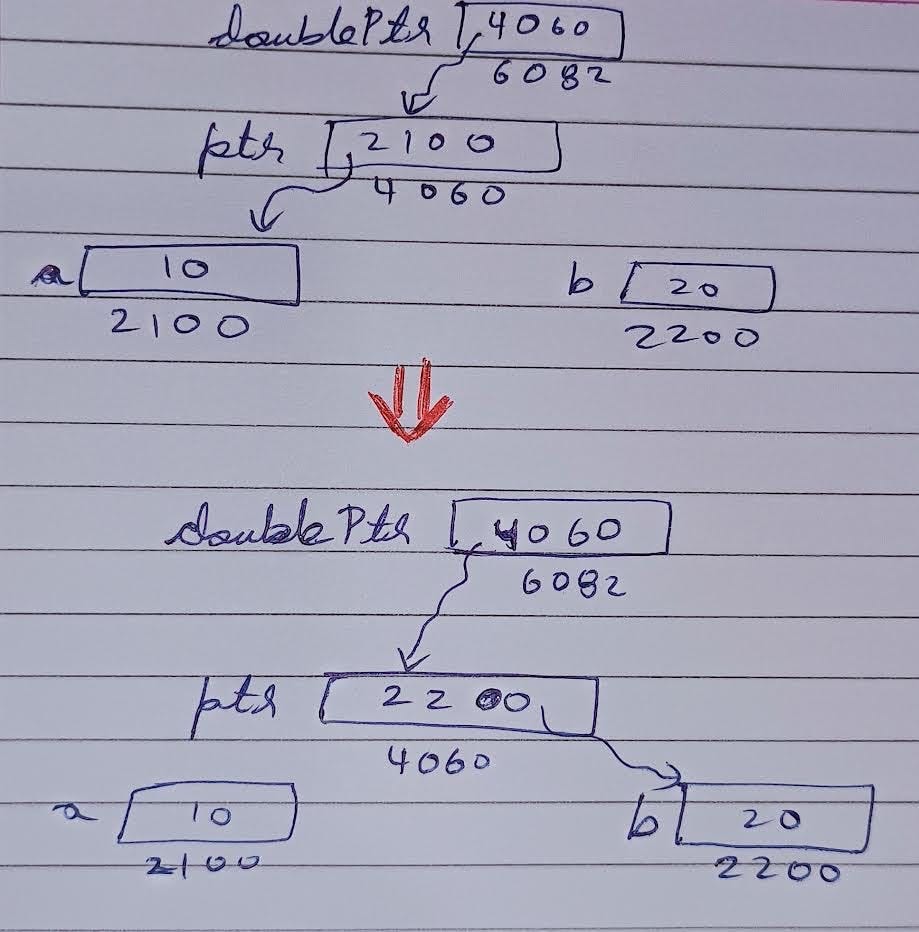 doublePtr 4060
6082
ptr 2100
4060
a 10
b 20
2100
2200
doublePtr 4060
6082
ptr 2200
4060
a 10
b 20
2100
2200